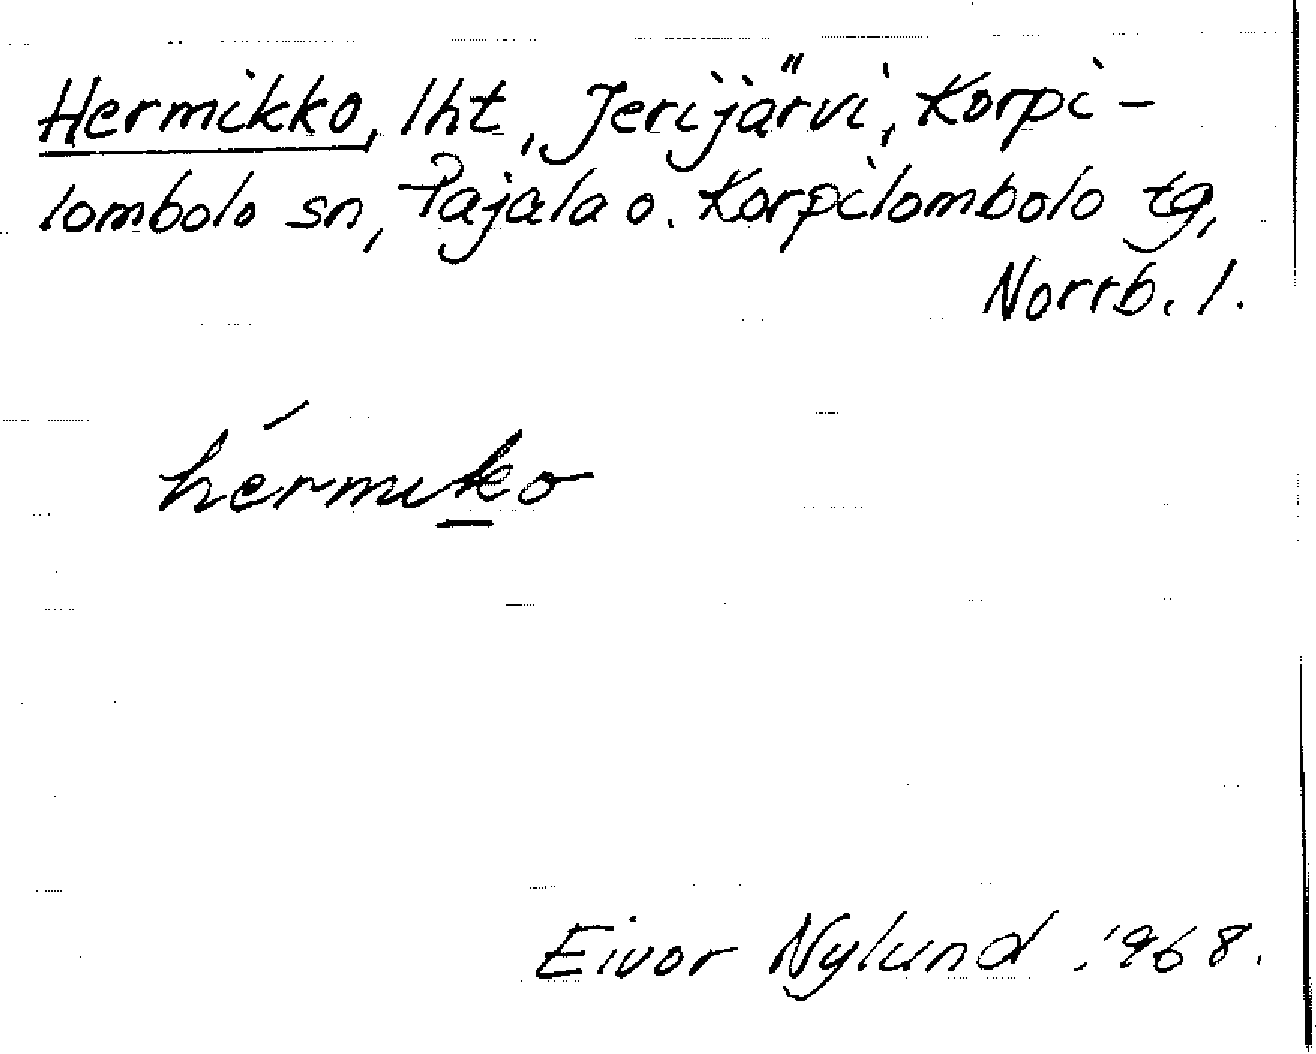 Hermikko, lht, Jerijärvi, Korpi-
lombolo sn, Pajala o. Korpilombolo tg,
Norrb. l.
hérmiko
Eivor Nylund 1968.